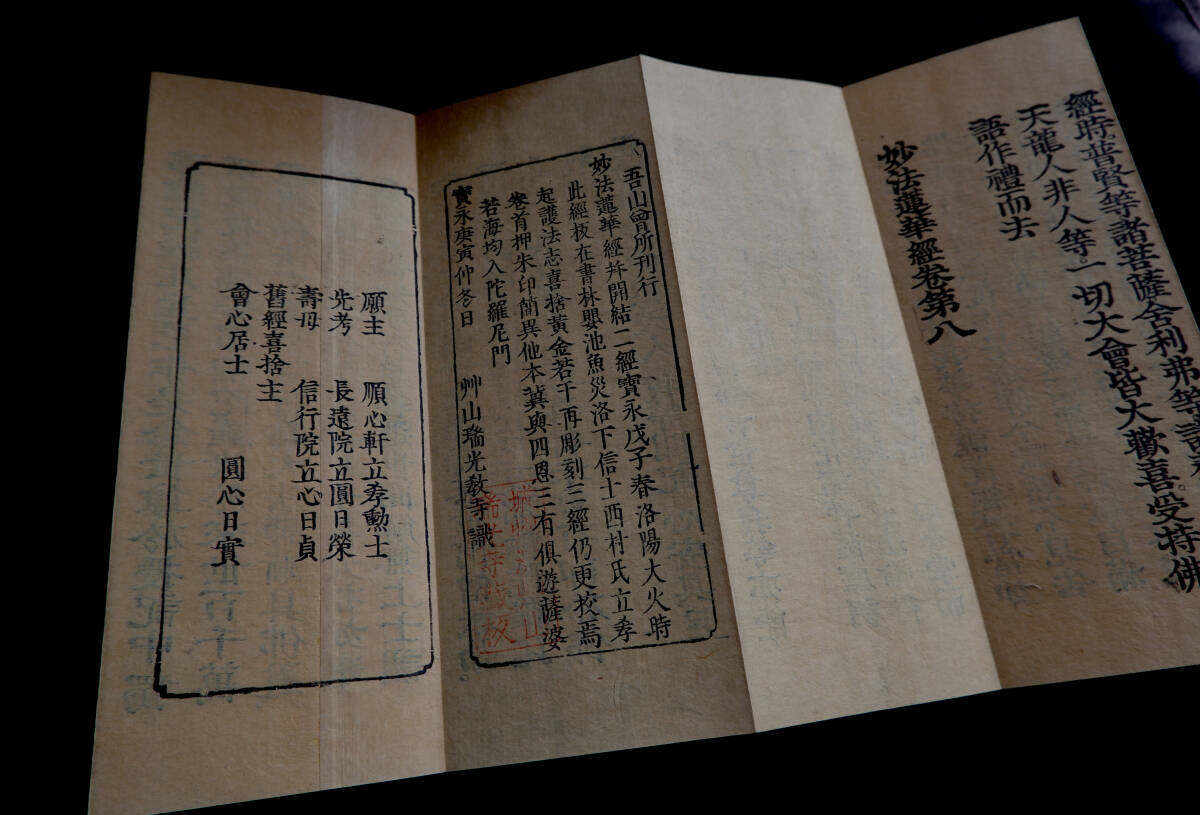 經時普賢等諸菩薩舍利弗等諸
天龍人非人等一切大會皆大歡喜受持佛
語作禮而去
妙法蓮華經卷第八
吾山曾所刊行
妙法蓮華經幷開結二經寶永戊子春洛陽大火時
此經板在書林嬰池魚災洛下信士西村氏立孝
起護法志喜捨黃金若干再彫刻三經仍更校焉
卷首押朱印簡異他本冀與四恩三有俱遊薩婆
若海均入陀羅尼門
寶永庚寅仲冬日 艸山瑞光敎寺識
願主 順心軒立孝勲士
先考 長遠院立圓日榮
壽母 信行院立心日貞
舊經喜捨主
會心居士 圓心日實